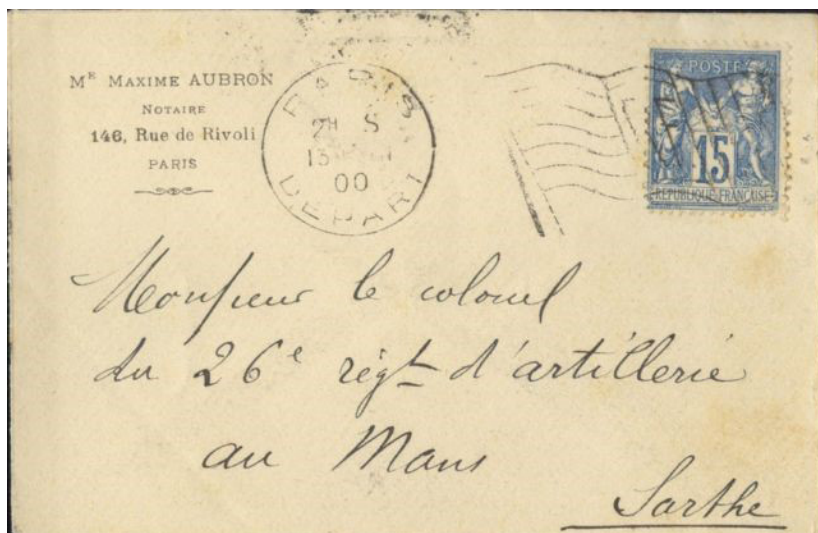 Mᴱ MAXIME AUBRON
NOTAIRE
146, Rue de Rivoli
PARIS
PARIS
2ᴴ S
13
00
DEPART
POSTE
15
REPUBLIQUE FRANÇAISE
Monsieur le colonel
du 26ᵉ régᵗ d'artillerie
au Mans
Sarthe